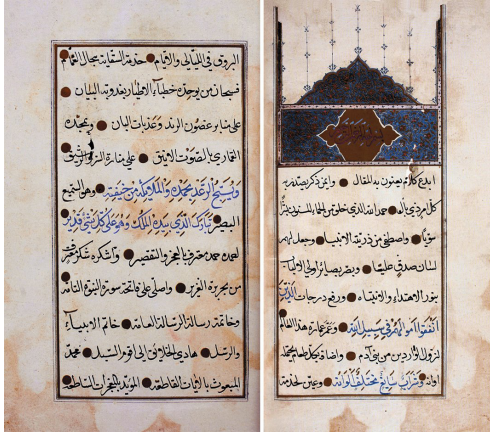 ابدع كلام يعنون به المقال وابهى ذكر يصدر به
كل امر ذي بال حمد الله الذي خلق من الحمإ المسنون بشرا
سويا واصطفى من ذريته الانبيا وجعل لهم
لسان صدق عليا وبصر بصائر اولي الالباب
بنور الاهتداء والانتباه ورفع درجات الذين
انفقوا اموالهم في سبيل الله وعمر عمارة هذا العالم
لنزول الواردين من بني آدم واضاف بكل طعام
اوانه وشراب سائغ مختلف الوانه وعين لخدمة
البروق في الليالي والايام خدمة السقاية الغمام
فسبحان من يوحده خطباء الاطيار بعذوبة البيان
على منابر غصون الرند وعذبات البان ويمجده
القماري بالصوت الانيق على منارة السرو الرشيق
ويسبح الرعد بحمده والملائكة من خيفته وهو السميع
البصير تبارك الذي بيده الملك وهو على كل شئ قدير
احمده حمد معترف بالعجز والتقصير واشكره شكر مغترف
من بحر بره الغزير واصلي على فاتحة سورة النبوة التامة
وخاتمة رسالة الرسالة العامة خاتم الانبياء
والرسل هادي الخلائق الى اقوم السبل محمد
المبعوث بالآيات القاطعة المؤيد بالمعجزات الساطعة